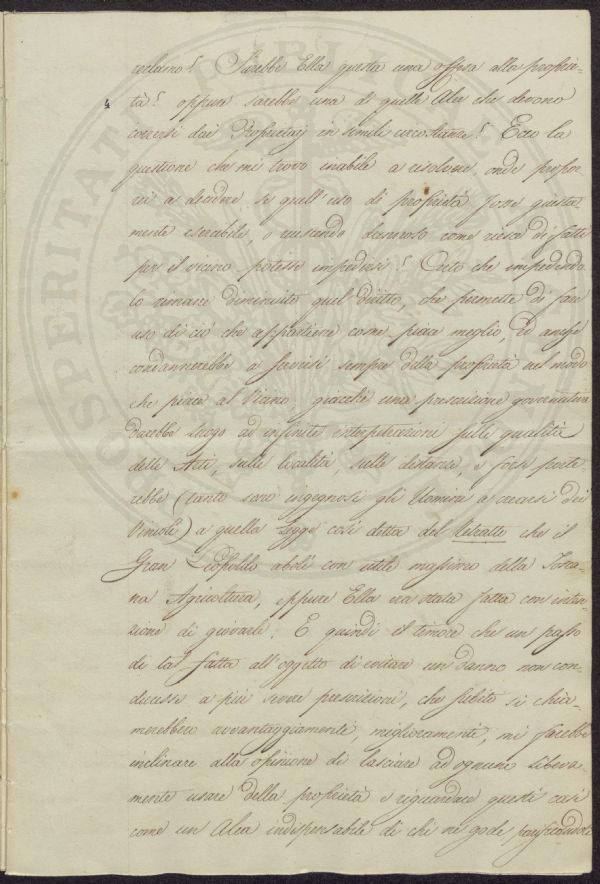 reclamo! Sarebbe Ella questa una offesa alla proprie-
tà! oppure sarebbe una di quelle Alee che devono
corrersi dai Proprietarj in simili circostanze! Ecco la
questione che mi trovo inabile a risolvere, onde propor
rei a decidere se quell'uso di proprietà fosse giusta-
mente esercibile, o riuscendo dannoso come riesce di fatti
per il vicino potesse impedirsi! Certo che impedendo
lo rimane diminuito quel diritto, che permette di fare
uso di ciò che appartiene come piace meglio. Ed anche
condannerebbe a servirsi sempre della proprietà nel modo
che piace al Vicino giacchè una prescrizione governativa
darebbe luogo ad infinite interpretazioni sulle qualità
delle Arti, sulle località, sulle distanze, e forse porte
rebbe (tanto sono ingegnosi gli Uomini a crearsi dei
Vincoli) a quella Legge così detta del Retratto che il
Gran Leopoldo abolì con utile massimo della Tosca-
na Agricoltura, eppure Ella era stata fatta con inten-
zione di giovarle. E quindi il timore che un passo
di tal fatta all'oggetto di evitare un danno non con-
ducesse a più severe prescrizioni, che subito si chia-
merebbero avvantaggiamenti, miglioramenti, mi farebbe
inclinare alla opinione di lasciare ad ognuno libera-
mente usare della proprietà e riguardare questi casi
come un Alea indispensabile di chi ne gode, parificandole
PROSPERITATI PUBLICAE